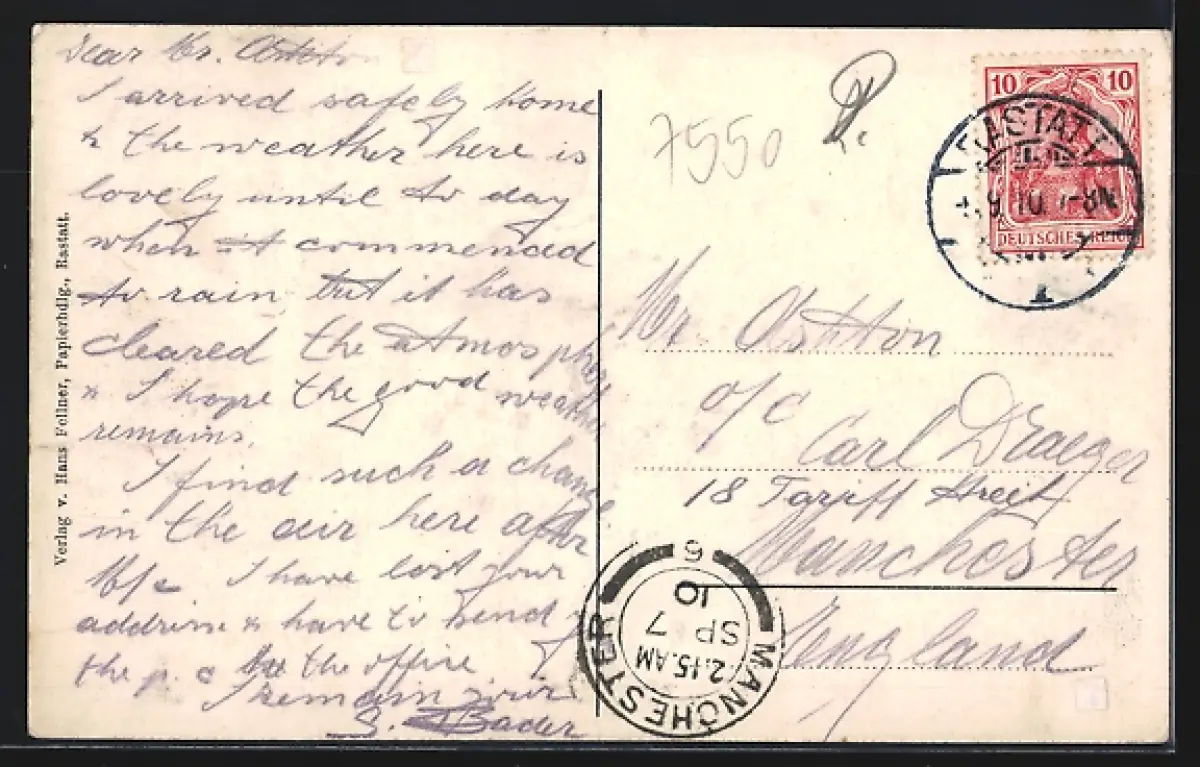 Dear Mr. Ashton
I arrived safely home
& the weather here is
lovely until to day
when it commenced
to rain but it has
cleared the atmosphere
& I hope the good weather
remains.
I find such a change
in the air here after
M/c I have lost your
address & have to send
the p.c to the office
I remain yours
S. Bader
Verlag v. Hans Fellner, Papierhdlg., Rastatt.
7550
10 10
DEUTSCHES REICH
RASTATT
Mr. Ashton
o/c Carl Draeger
18 Tariff Street
Manchester
England
MANCHESTER
2.15.AM
SP 7
10
6